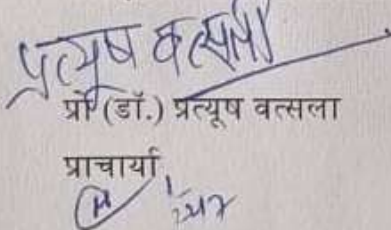 प्रत्यूष वत्सला
प्रो (डॉ.) प्रत्यूष वत्सला
प्राचार्या